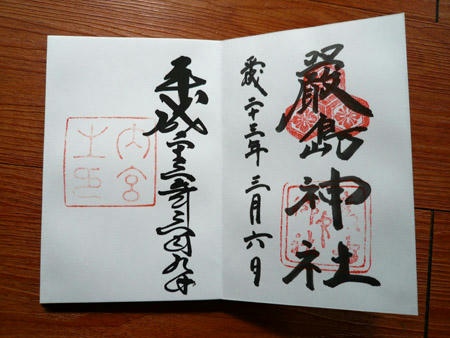 嚴島神社
平成二十三年 三月六日
平成二十三年三月九日
内宮
之印